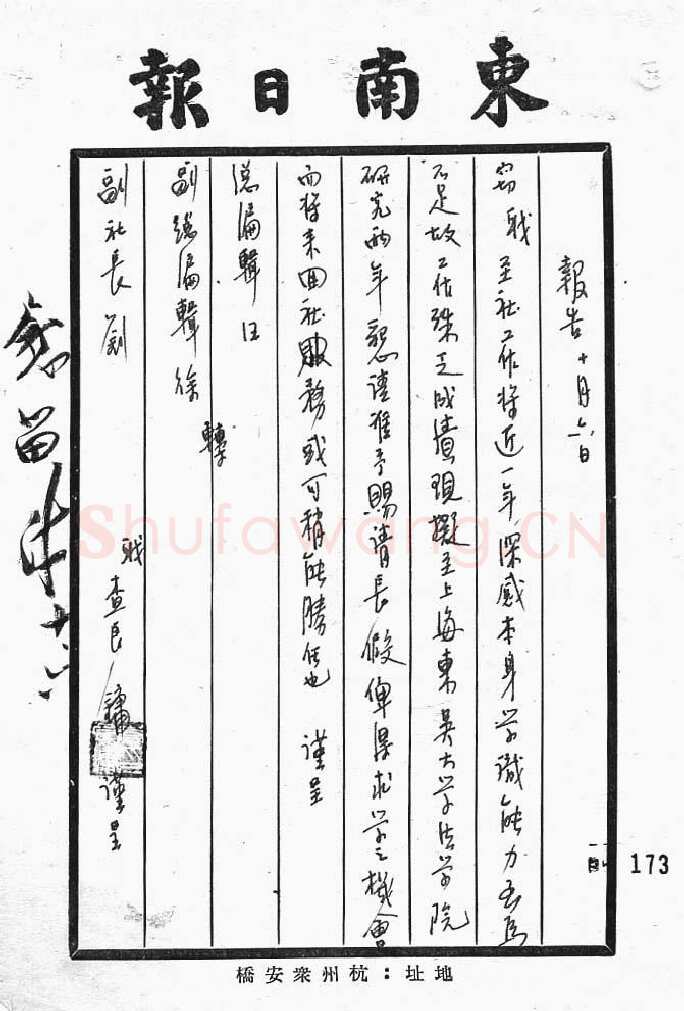 東南日報
報告 十月六日
竊職至社工作將近一年深感本身學識能力至為
不足故工作殊乏成績現擬至上海東吳大學法學院
研究兩年懇請准予賜請長假俾得求學之機會
而將來回社服務或可稍能勝任也 謹呈
總編輯汪
副總編輯徐 轉
副社長劉
職 查良鏞 謹呈
十六
173
地址：杭州眾安橋
Shufawang.CN